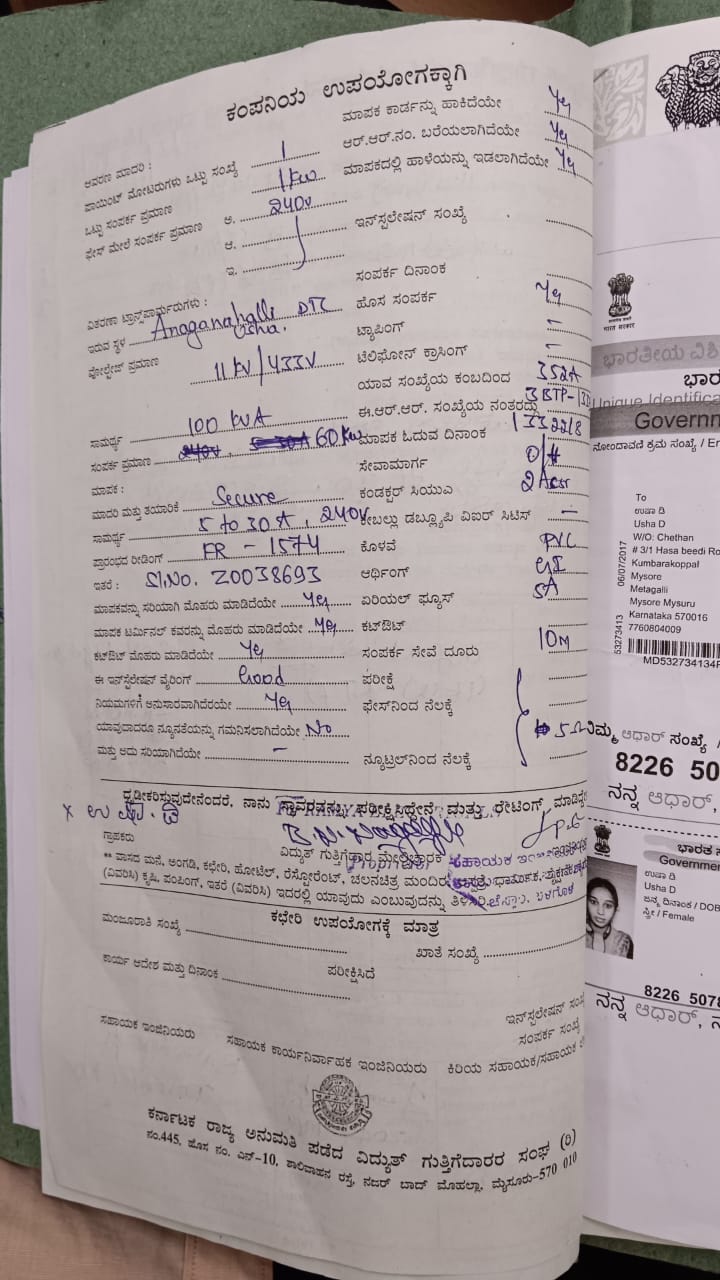 ಕಂಪನಿಯ ಉಪಯೋಗಕ್ಕಾಗಿ
ಆವರಣ ಮಾದರಿ :
ಪಾಯಿಂಟ್ ಮೋಟರುಗಳು ಒಟ್ಟು ಸಂಖ್ಯೆ 1
ಒಟ್ಟು ಸಂಪರ್ಕ ಪ್ರಮಾಣ 1 KW
ಫೇಸ್ ಮೇಲೆ ಸಂಪರ್ಕ ಪ್ರಮಾಣ ಅ. 240V
ಆ.
ಇ.
ವಿತರಣಾ ಟ್ರಾನ್ಸ್‌ಫಾರ್ಮರುಗಳು :
ಇರುವ ಸ್ಥಳ Anaganahalli DTC
Usha.
ವೋಲ್ಟೇಜ್ ಪ್ರಮಾಣ 11 KV/433V
ಸಾಮರ್ಥ್ಯ 100 KVA
ಸಂಪರ್ಕ ಪ್ರಮಾಣ 60 KW
ಮಾಪಕ :
ಮಾದರಿ ಮತ್ತು ತಯಾರಿಕೆ Secure
ಸಾಮರ್ಥ್ಯ 5 to 30 A, 240V
ಪ್ರಾರಂಭದ ರೀಡಿಂಗ್ FR - 1574
ಇತರೆ : Sl.No. 20038693
ಮಾಪಕವನ್ನು ಸರಿಯಾಗಿ ಮೊಹರು ಮಾಡಿದೆಯೇ Yes
ಮಾಪಕ ಟರ್ಮಿನಲ್ ಕವರನ್ನು ಮೊಹರು ಮಾಡಿದೆಯೇ Yes
ಕಟೌಟ್ ಮೊಹರು ಮಾಡಿದೆಯೇ Yes
ಈ ಇನ್‌ಸ್ಟಲೇಷನ್ ವೈರಿಂಗ್ Good
ನಿಯಮಗಳಿಗೆ ಅನುಸಾರವಾಗಿದೆಯೇ Yes
ಯಾವುದಾದರೂ ನ್ಯೂನತೆಯನ್ನು ಗಮನಿಸಲಾಗಿದೆಯೇ No
ಮತ್ತು ಅದು ಸರಿಯಾಗಿದೆಯೇ -
ಮಾಪಕ ಕಾರ್ಡನ್ನು ಹಾಕಿದೆಯೇ Yes
ಆರ್.ಆರ್.ನಂ. ಬರೆಯಲಾಗಿದೆಯೇ Yes
ಮಾಪಕದಲ್ಲಿ ಹಾಳೆಯನ್ನು ಇಡಲಾಗಿದೆಯೇ Yes
ಇನ್‌ಸ್ಟಲೇಷನ್ ಸಂಖ್ಯೆ
ಸಂಪರ್ಕ ದಿನಾಂಕ
ಹೊಸ ಸಂಪರ್ಕ Yes
ಟ್ಯಾಪಿಂಗ್ -
ಟೆಲಿಫೋನ್ ಕ್ರಾಸಿಂಗ್ -
ಯಾವ ಸಂಖ್ಯೆಯ ಕಂಬದಿಂದ 352A
ಈ.ಆರ್.ಆರ್. ಸಂಖ್ಯೆಯ ನಂತರದ್ದು
ಮಾಪಕ ಓದುವ ದಿನಾಂಕ
ಸೇವಾಮಾರ್ಗ O/H
ಕಂಡಕ್ಟರ್ ಸಿಯುಎ
ಕೇಬಲ್ಲು ಡಬ್ಲ್ಯೂಪಿ ವಿಐರ್ ಸಿಟಿಸ್ -
ಕೊಳವೆ PVC
ಆರ್ಥಿಂಗ್ GI
ಏರಿಯಲ್ ಫ್ಯೂಸ್ 5A
ಕಟ್‌ಔಟ್
ಸಂಪರ್ಕ ಸೇವೆ ದೂರು 10M
ಪರೀಕ್ಷೆ
ಫೇಸ್‌ನಿಂದ ನೆಲಕ್ಕೆ
ನ್ಯೂಟ್ರಲ್‌ನಿಂದ ನೆಲಕ್ಕೆ
ದೃಢೀಕರಿಸುವುದೇನೆಂದರೆ, ನಾನು ಸ್ಥಾವರವನ್ನು ಪರೀಕ್ಷಿಸಿದ್ದೇನೆ ಮತ್ತು ರೇಟಿಂಗ್ ಮಾಡಿದ್ದೇ
x ಉಷಾ. ಡಿ
ಗ್ರಾಹಕರು
ವಿದ್ಯುತ್ ಗುತ್ತಿಗೆದಾರ ಮೇಲ್ವಿಚಾರಕ
** ವಾಸದ ಮನೆ, ಅಂಗಡಿ, ಕಛೇರಿ, ಹೋಟೆಲ್, ರೆಸ್ಟೋರೆಂಟ್, ಚಲನಚಿತ್ರ ಮಂದಿರ
(ವಿವರಿಸಿ) ಕೃಷಿ, ಪಂಪಿಂಗ್, ಇತರೆ (ವಿವರಿಸಿ) ಇದರಲ್ಲಿ ಯಾವುದು ಎಂಬುವುದನ್ನು ತಿಳಿಸಿರಿ.
ಕಛೇರಿ ಉಪಯೋಗಕ್ಕೆ ಮಾತ್ರ
ಮಂಜೂರಾತಿ ಸಂಖ್ಯೆ
ಖಾತೆ ಸಂಖ್ಯೆ
ಕಾರ್ಯ ಆದೇಶ ಮತ್ತು ದಿನಾಂಕ
ಪರೀಕ್ಷಿಸಿದೆ
ಇನ್‌ಸ್ಟಲೇಷನ್ ಸಂಖ್ಯೆ
ಸಂಪರ್ಕ ಸಂಖ್ಯೆ
ಸಹಾಯಕ ಇಂಜಿನಿಯರು ಸಹಾಯಕ ಕಾರ್ಯನಿರ್ವಾಹಕ ಇಂಜಿನಿಯರು ಕಿರಿಯ ಸಹಾಯಕ/ಸಹಾಯಕ
ಕರ್ನಾಟಕ ರಾಜ್ಯ ಅನುಮತಿ ಪಡೆದ ವಿದ್ಯುತ್ ಗುತ್ತಿಗೆದಾರರ ಸಂಘ (ರಿ)
ನಂ.445, ಹೊಸ ನಂ. ಎನ್-10, ಶಾಲಿವಾಹನ ರಸ್ತೆ, ನಜರ್ ಬಾದ್ ಮೊಹಲ್ಲಾ, ಮೈಸೂರು-570 010
भारत सरकार
ಭಾರತೀಯ ವಿಶಿ
ಭಾರ
Unique Identifica
Governm
ನೋಂದಾವಣಿ ಕ್ರಮ ಸಂಖ್ಯೆ / Er
To
ಉಷಾ ಡಿ
Usha D
W/O: Chethan
# 3/1 Hasa beedi Ro
Kumbarakoppal
Mysore
Metagalli
Mysore Mysuru
Karnataka 570016
7760804009
06/07/2017
53273413
MD532734134F
ನಿಮ್ಮ ಆಧಾರ್ ಸಂಖ್ಯೆ /
8226 50
ನನ್ನ ಆಧಾರ್,
ಭಾರತ ಸ
Governme
ಉಷಾ ಡಿ
Usha D
ಜನ್ಮ ದಿನಾಂಕ / DOB
ಸ್ತ್ರೀ / Female
8226 5078
ನನ್ನ ಆಧಾರ್, ನ